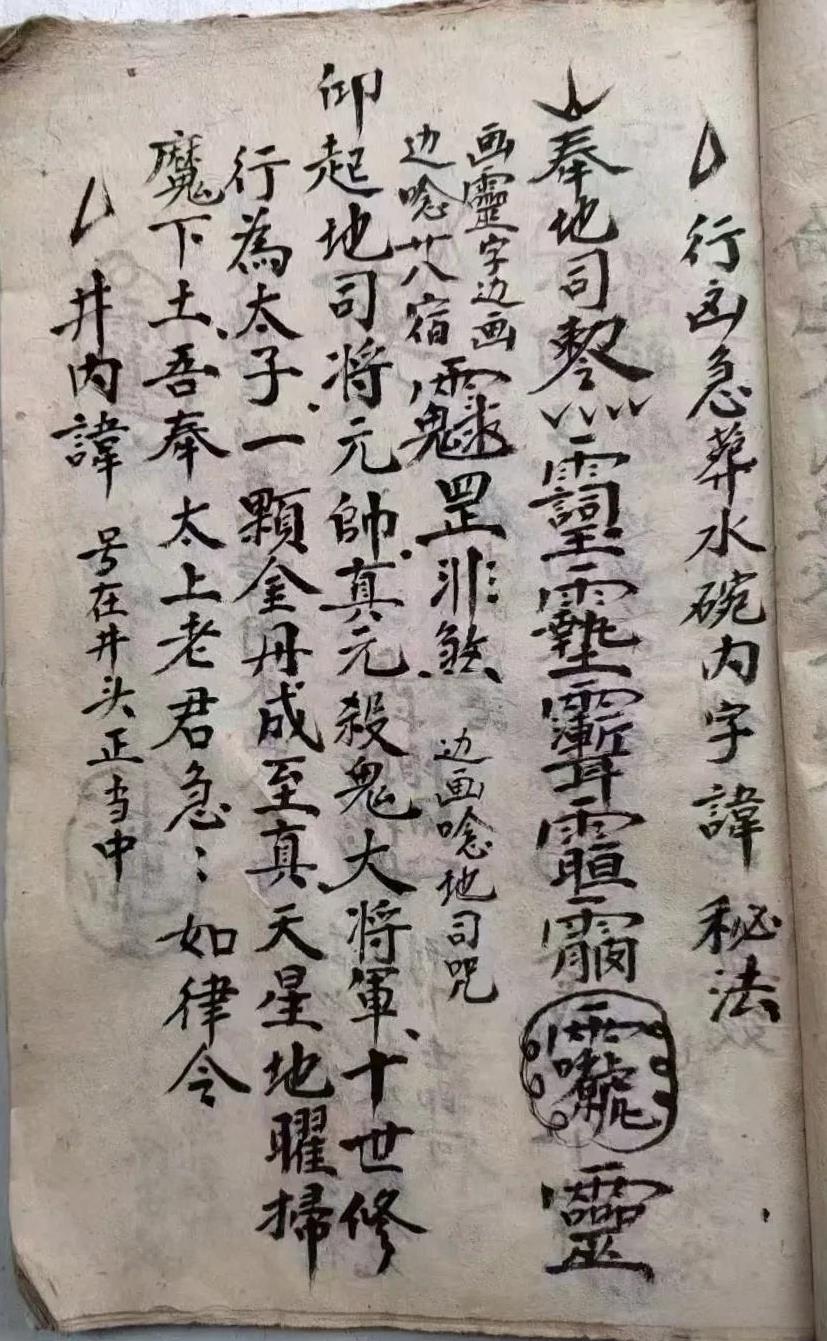 行凶急葬水碗内字諱 秘法
奉地司 靈
画靈字边画
边唸廿八宿
罡 煞
边画唸地司咒
仰起地司将元帥真元殺鬼大将軍十世修
行為太子一顆金丹成至真天星地曜掃
魔下土吾奉太上老君急〻如律令
井内諱 号在井头正当中